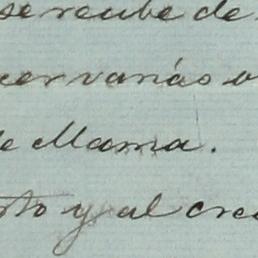 se recibe de
cer varias v
de Mama.
sto y al crea